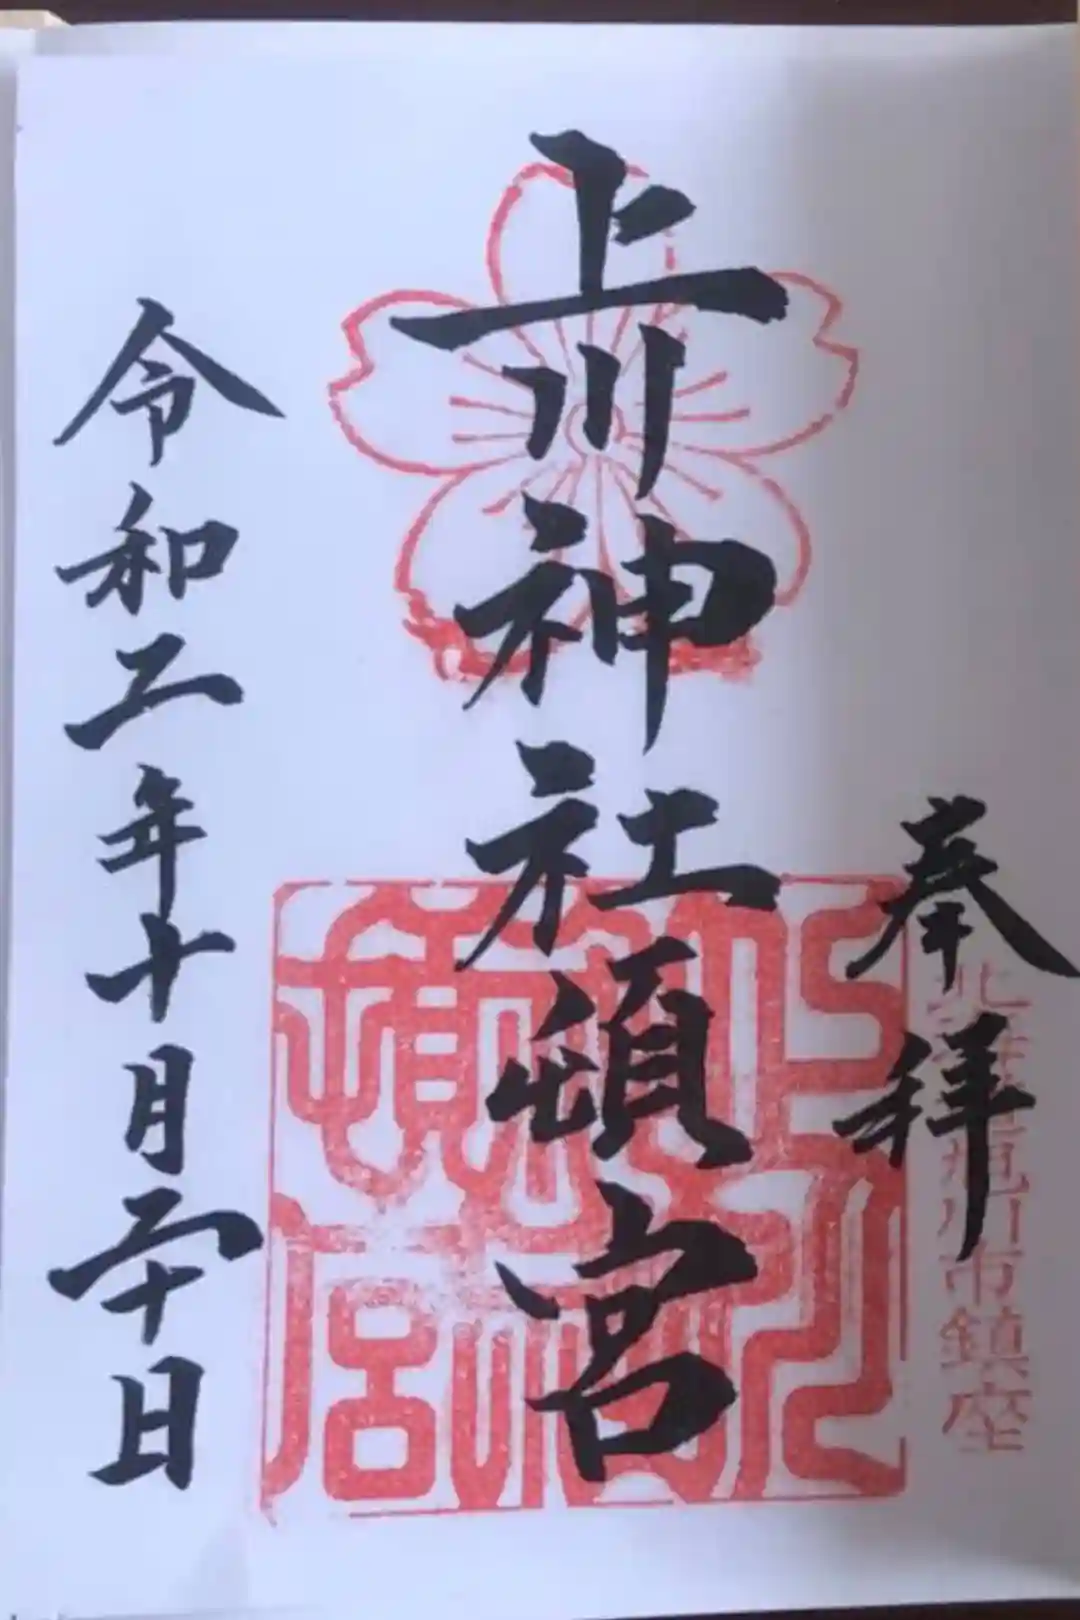 奉拝
北海道旭川市鎮座
上川神社頓宮
令和二年十月二十日